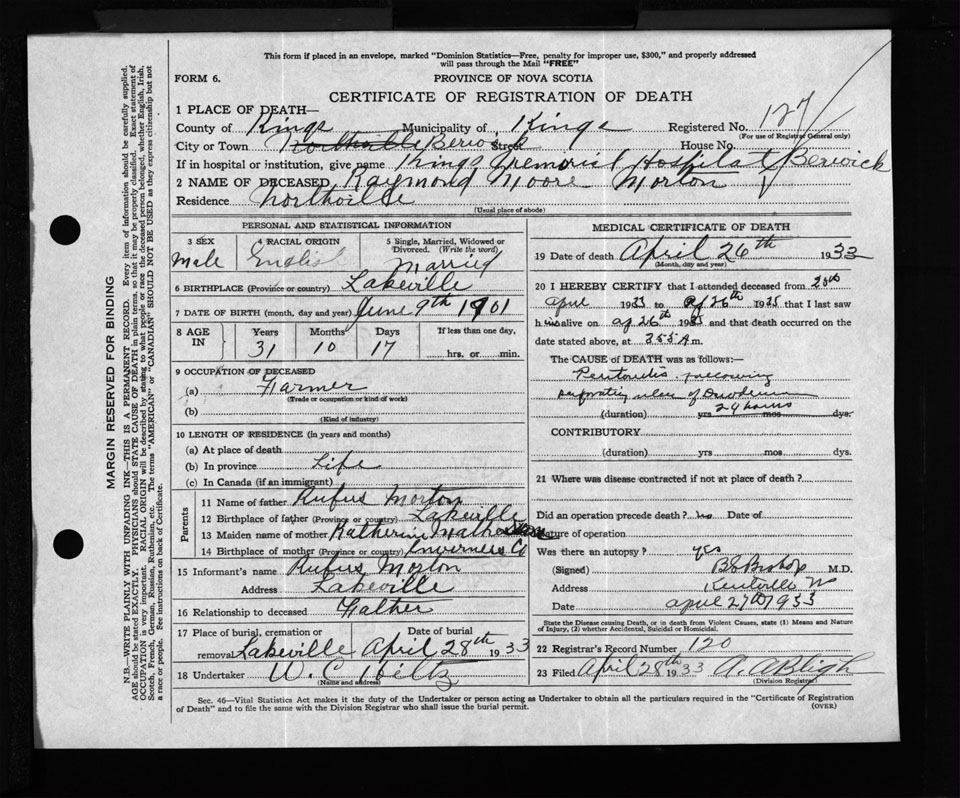 This form if placed in an envelope, marked "Dominion Statistics—Free, penalty for improper use, $300," and properly addressed
will pass through the Mail "FREE"
FORM 6.
PROVINCE OF NOVA SCOTIA
CERTIFICATE OF REGISTRATION OF DEATH
1 PLACE OF DEATH—
County of Kings Municipality of Kings Registered No. 127
(For use of Registrar General only)
City or Town Northville Berwick Street House No.
If in hospital or institution, give name Kings Memorial Hospital Berwick
2 NAME OF DECEASED Raymond Moore Morton
Residence Northville
(Usual place of abode)
PERSONAL AND STATISTICAL INFORMATION
3 SEX Male
4 RACIAL ORIGIN English
5 Single, Married, Widowed or Divorced. (Write the word) Married
6 BIRTHPLACE (Province or country) Lakeville
7 DATE OF BIRTH (month, day and year) June 9th 1901
8 AGE IN Years 31 Months 10 Days 17 If less than one day, hrs. or min.
9 OCCUPATION OF DECEASED
(a) Farmer
(Trade or occupation or kind of work)
(b)
(Kind of industry)
10 LENGTH OF RESIDENCE (in years and months)
(a) At place of death
(b) In province Life
(c) In Canada (if an immigrant)
Parents
11 Name of father Rufus Morton
12 Birthplace of father (Province or country) Lakeville
13 Maiden name of mother Katherine
14 Birthplace of mother (Province or country) Inverness Co
15 Informant's name Rufus Morton
Address Lakeville
16 Relationship to deceased Father
17 Place of burial, cremation or removal Lakeville Date of burial April 28th 1933
18 Undertaker W. C. Hiltz
(Name and address)
MEDICAL CERTIFICATE OF DEATH
19 Date of death April 26th 1933
(Month, day and year)
20 I HEREBY CERTIFY that I attended deceased from 25th
april 1933 to ap 26th 1935 that I last saw
him alive on ap 26th 1935 and that death occurred on
date stated above, at 355 A m.
The CAUSE of DEATH was as follows:—
Peritonitis following
perforating ulcer of Duodenum
(duration) yrs mos dys. 24 hours
CONTRIBUTORY
(duration) yrs mos dys.
21 Where was disease contracted if not at place of death?
Did an operation precede death? no Date of
Nature of operation
Was there an autopsy? yes
(Signed) B S Bishop M.D.
Address Kentville NS
Date april 27th 1933
State the Disease causing Death, or in death from Violent Causes, state (1) Means and Nature
of Injury, (2) whether Accidental, Suicidal or Homicidal.
22 Registrar's Record Number 120
23 Filed April 28th 1933 A. A Bligh
(Division Registrar)
Sec. 46—Vital Statistics Act makes it the duty of the Undertaker or person acting as Undertaker to obtain all the particulars required in the "Certificate of Registration
of Death" and to file the same with the Division Registrar who shall issue the burial permit.
(OVER)
MARGIN RESERVED FOR BINDING
N.B.—WRITE PLAINLY WITH UNFADING INK—THIS IS A PERMANENT RECORD. Every item of information should be carefully supplied.
AGE should be stated EXACTLY. PHYSICIANS should STATE CAUSE OF DEATH in plain terms, so that it may be properly classified. Exact statement of
OCCUPATION is very important. RACIAL ORIGIN will be described by stating to what people or race the deceased person belonged, whether English, Irish,
Scotch, French, German, Russian, Ruthenian, etc. The terms "AMERICAN" or "CANADIAN" SHOULD NOT BE USED as they express citizenship but not
a race or people. See instructions on back of Certificate.